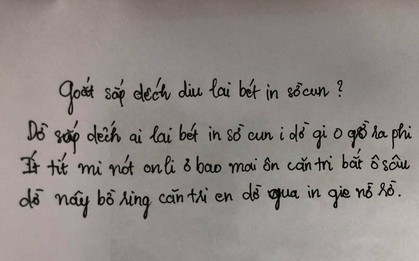 Goát sắp dếch diu lai bét in sồ cun ?
Dồ sắp dếch ai lai bét in sồ cun i dồ gi o gờ ra phi
Ít tít mi nót onli ồ bao mai ôn căn tri bắt ô sâu
dồ nây bồ ring căn tri en dồ qua in gie nồ rồ.